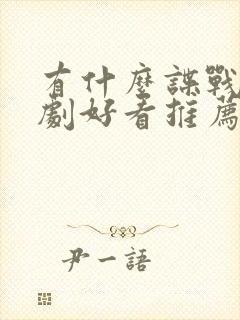 有什麼諜戰
劇好看推薦
尹一語